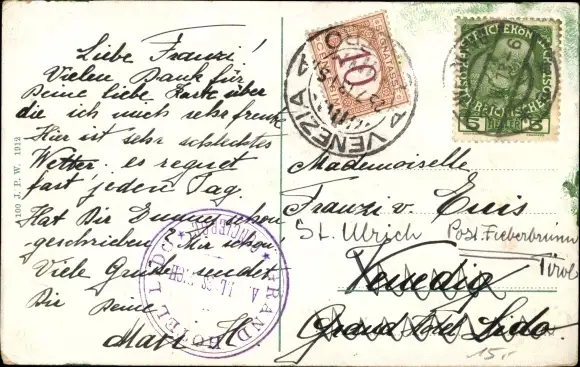 Liebe Franzi!
Vielen Dank für
Deine liebe Karte über
die ich mich sehr freute
Hier ist sehr schlechtes
Wetter. es regnet
fast jeden Tag.
Hat Dir Emmy schon
geschrieben? Mir schon,
Viele Grüsse sendet
Dir Deine
100 J. P. W. 1912
GRAND HOTEL LIDO
CONCIERGE
VENEZIA
10
SEGNATASSE
5 HELLER 5
Mademoiselle
Franzi v.
St. Ulrich Post. Fieberbrunn
Tirol
Venedig
Grand Hotel Lido.
15,-